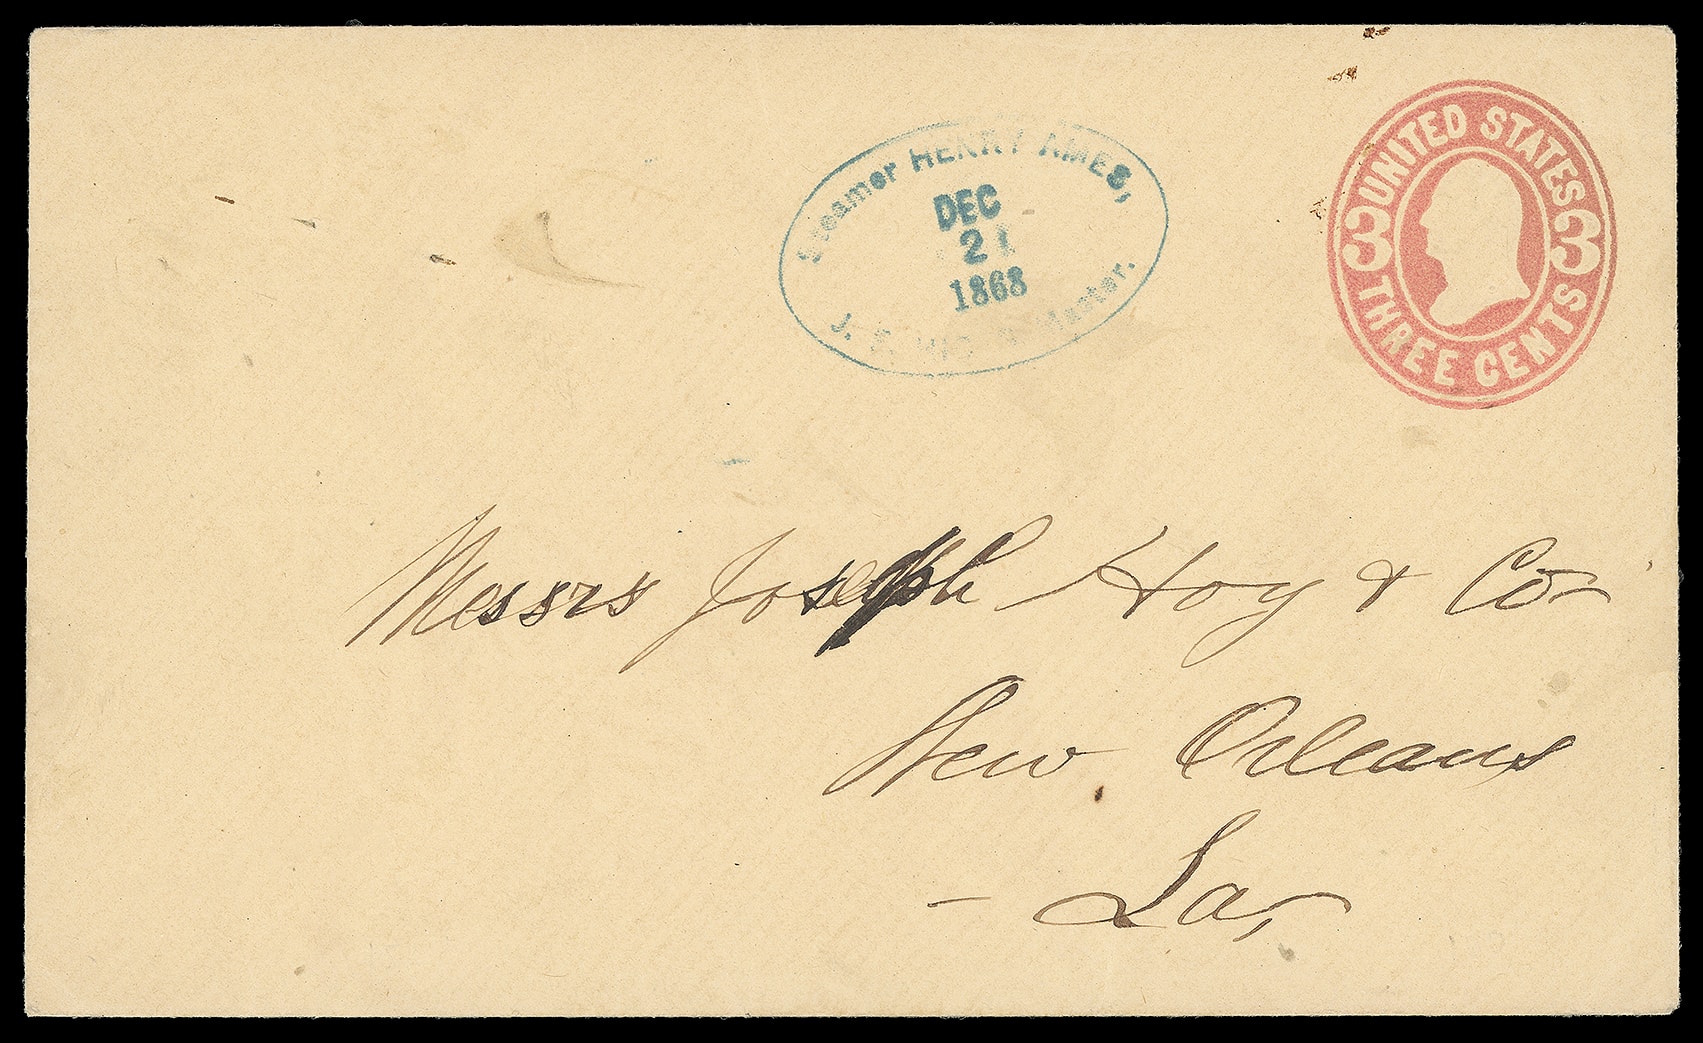 Steamer HENRY AMES,
DEC
21
1868
J. F. Master.
UNITED STATES
3 3
THREE CENTS
Messrs Joseph Hoy & Co
New Orleans
La,